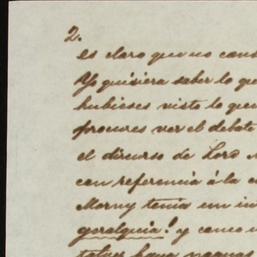 2.
es claro que no cans
Yo quisiera saber lo que
hubieses visto lo que
procures ver el debate
el discurso de Lord
con referencia á la
Morny tenia un in
goralguia! y como